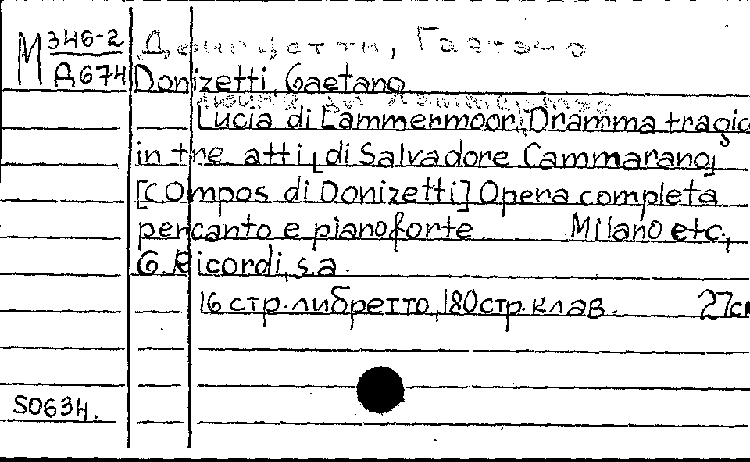 М 346-2 Доницетти, Гаэтано
Д674 Donizetti, Gaetano
Lucia di Lammermoor. Dramma tragico
in tre atti [di Salvadore Cammarano]
[Compos di Donizetti] Opera completa
per canto e pianoforte Milano etc,
G. Ricordi, s.a.
16 стр. либретто, 180 стр. клав. 27см
50634.